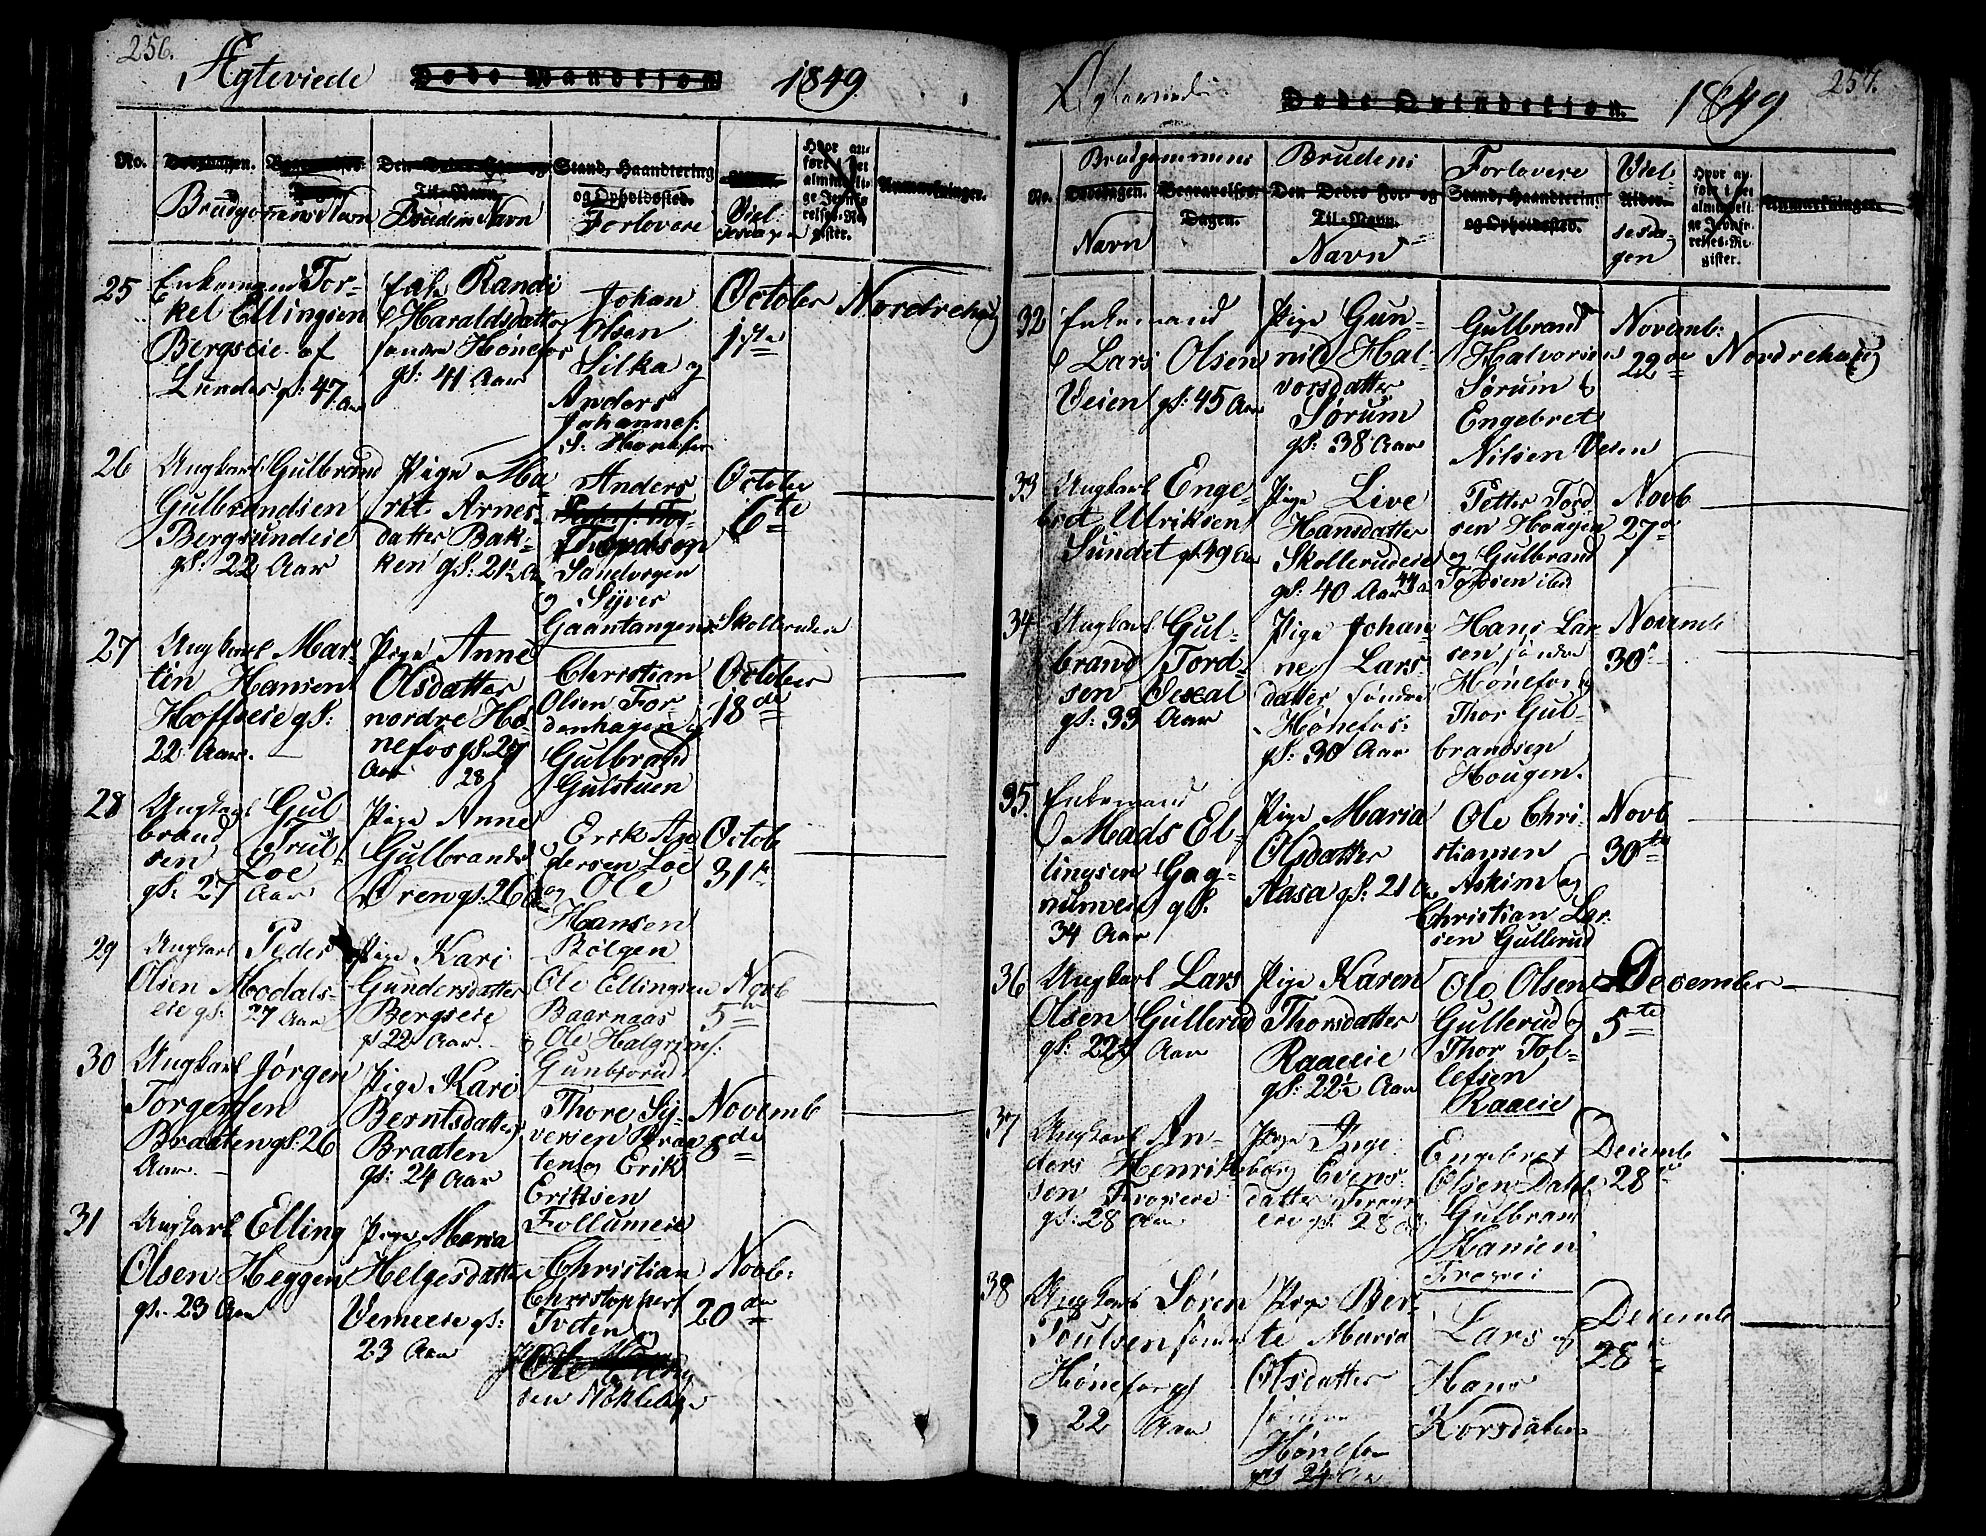 256.
Ægteviede Døde Mandkjøn 1849
No.
Brudgommens Navn
Den Dødes For- og Til-Navn
Brudens Navn
Stand, Haandtering og Opholdssted.
Forlovere
Viel
sesdagen
Hvor anført i det almindelige Jevnførelses-Register.
Anmærkninger.
25
Enkemand Tor-
kel Ellingsen
Bergseie af
Lunder gl: 47 Aar
Enke Randi
Haraldsdatter
søndre Hønefos
gl: 41 Aar
Johan
Olsen
Silka og
Anders
Johannes:
S: Hønefos
October
1ste
Nordrehaug
26
Ungkarl Gulbrand
Gulbrandsen
Bergsundeie
gl: 22 Aar
Pige Ma-
rit Arnes-
datter Bak-
ken gl: 21½ A
Anders
Thordsen
Sandvegen
og Syver
Gaantangen
October
6te
27
Ungkarl Mar-
tin Hansen
Hoffseie gl:
22 Aar.
Pige Anne
Olsdatter
nordre Hø-
nefos gl: 27
Aar 28
Christian
Olsen For
denhagen og
Gulbrand
Gulstuen
Skollerudeie
October
18de
28
Ungkarl Gul
brand Trul
sen Loe
gl: 27 Aar
Pige Anne
Gulbrands
Øren gl: 26
Erik An
dersen Loe
og Ole
Hansen
Bølgen
Octob
31te
29
Ungkarl Peder
Olsen Modals-
eie gl: 27 Aar
Pige Kari
Gundersdatter
Bergseie
gl 22 Aar.
Ole Ellingsen
Baarnaas
og Ole Halgrims:
Gunbjørud
Novb
5te
30
Ungkarl Jørgen
Torgersen
Braaten gl: 26
Aar.
Pige Kari
Berntsdatter
Braaten
gl: 24 Aar
Thore Sy-
versen Braa
ten og Erik
Eriksen
Follumeie
Novemb
8de
31
Ungkarl Elling
Olsen Heggen
gl. 23 Aar
Pige Maria
Helgesdatter
Vemeeie gl:
23 Aar
Christian
Christophers
Tveten
Ole
sen
Novb:
20de
257.
Ægteviede Døde Qvindekjøn. 1849
No.
Brudgommens
Dødsdagen.
Begravelses-Dagen.
Navn
Brudens
Den Dødes For- og Til-Navn.
Navn
Forlovere
Stand, Haandtering og Opholdssted.
Viel
Alder.
sesda-
gen
Hvor anført i det almindelige Jevnførelses-Register.
Anmærkninger.
32
Enkemand
Lars Olsen
Veien gl: 45 Aar
Pige Gun-
nild Hal-
vorsdatter
Sørum
gl: 38 Aar
Gulbrand
Halvorsen
Sørum &
Engebret
Nilsen Veien
Novemb:
22de
Nordrehaug
33
Ungkarl Enge-
bret Ulriksen
Sundet gl 49 Aar
Pige Live
Hansdatter
Skollerudeie
gl: 40 Aar 44
Petter Tord
sen Hougen
og Gulbrand
Tordsen ibid
Novb
27de
34
Ungkarl Gul-
brand Tord-
sen Vesetal
gl: 33 Aar
Pige Johan-
ne Lars-
datter søndre
Hønefos:
gl: 30 Aar
Hans Lar
sen søndre
Hønefos og
Thor Gul-
brandsen
Hougen.
Novemb
30te
35.
Enkemand
Mads El-
lingsen Gag-
numeie gl:
34 Aar
Pige Maria
Olsdatter
Aasa gl: 21 A
Ole Chri-
stiansen
Askim og
Christian Lar-
sen Gullerud
Novb
30te
36
Ungkarl Lars
Olsen Gullerud
gl: 22½ Aar
Pige Karen
Thorsdatter
Raaeeie
gl: 22½ Aar
Ole Olsen
Gullerud og
Thor Tol-
lefsen
Raaeie
December
5te
37
Ungkarl An-
ders Henrik-
sen Frogseie
gl: 28 Aar
Pige Inge
borg Evens-
datter Frogs
eie gl: 28
Engebret
Olsen Dahl
Gulbrand
Hansen
Decemb
28de
38
Ungkarl Søren
Poulsen søndre
Hønefos gl
22 Aar
Pige Ber-
te Maria
Olsdatter
søndre
Hønefos
gl 24 Aar
Lars og
Hans
Korsdalen
Decemb
28de